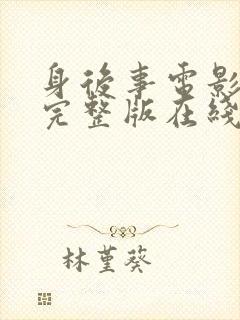 身後事電影
完整版在綫
林堇葵